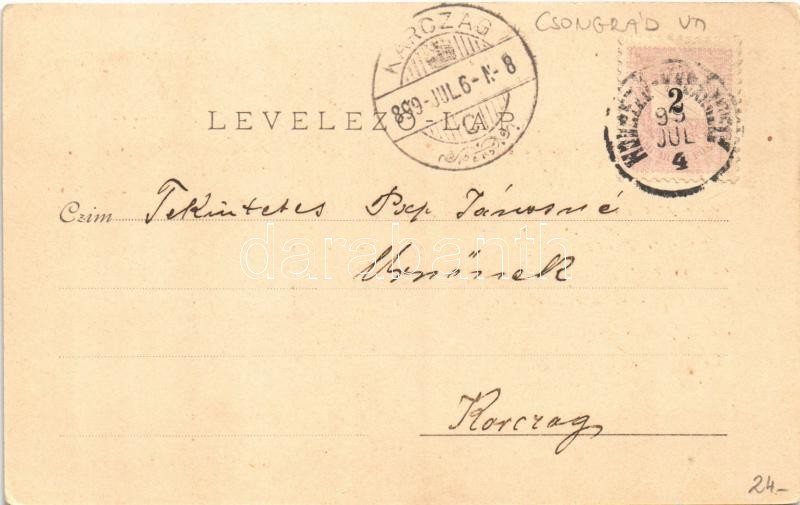 CSONGRÁD VM
KARCZAG
899-JUL.6-N-8
2
99
JUL
4
LEVELEZŐ-LAP
Czim Tekintetes Pap Jánosné
Karczag
24-
darabanth